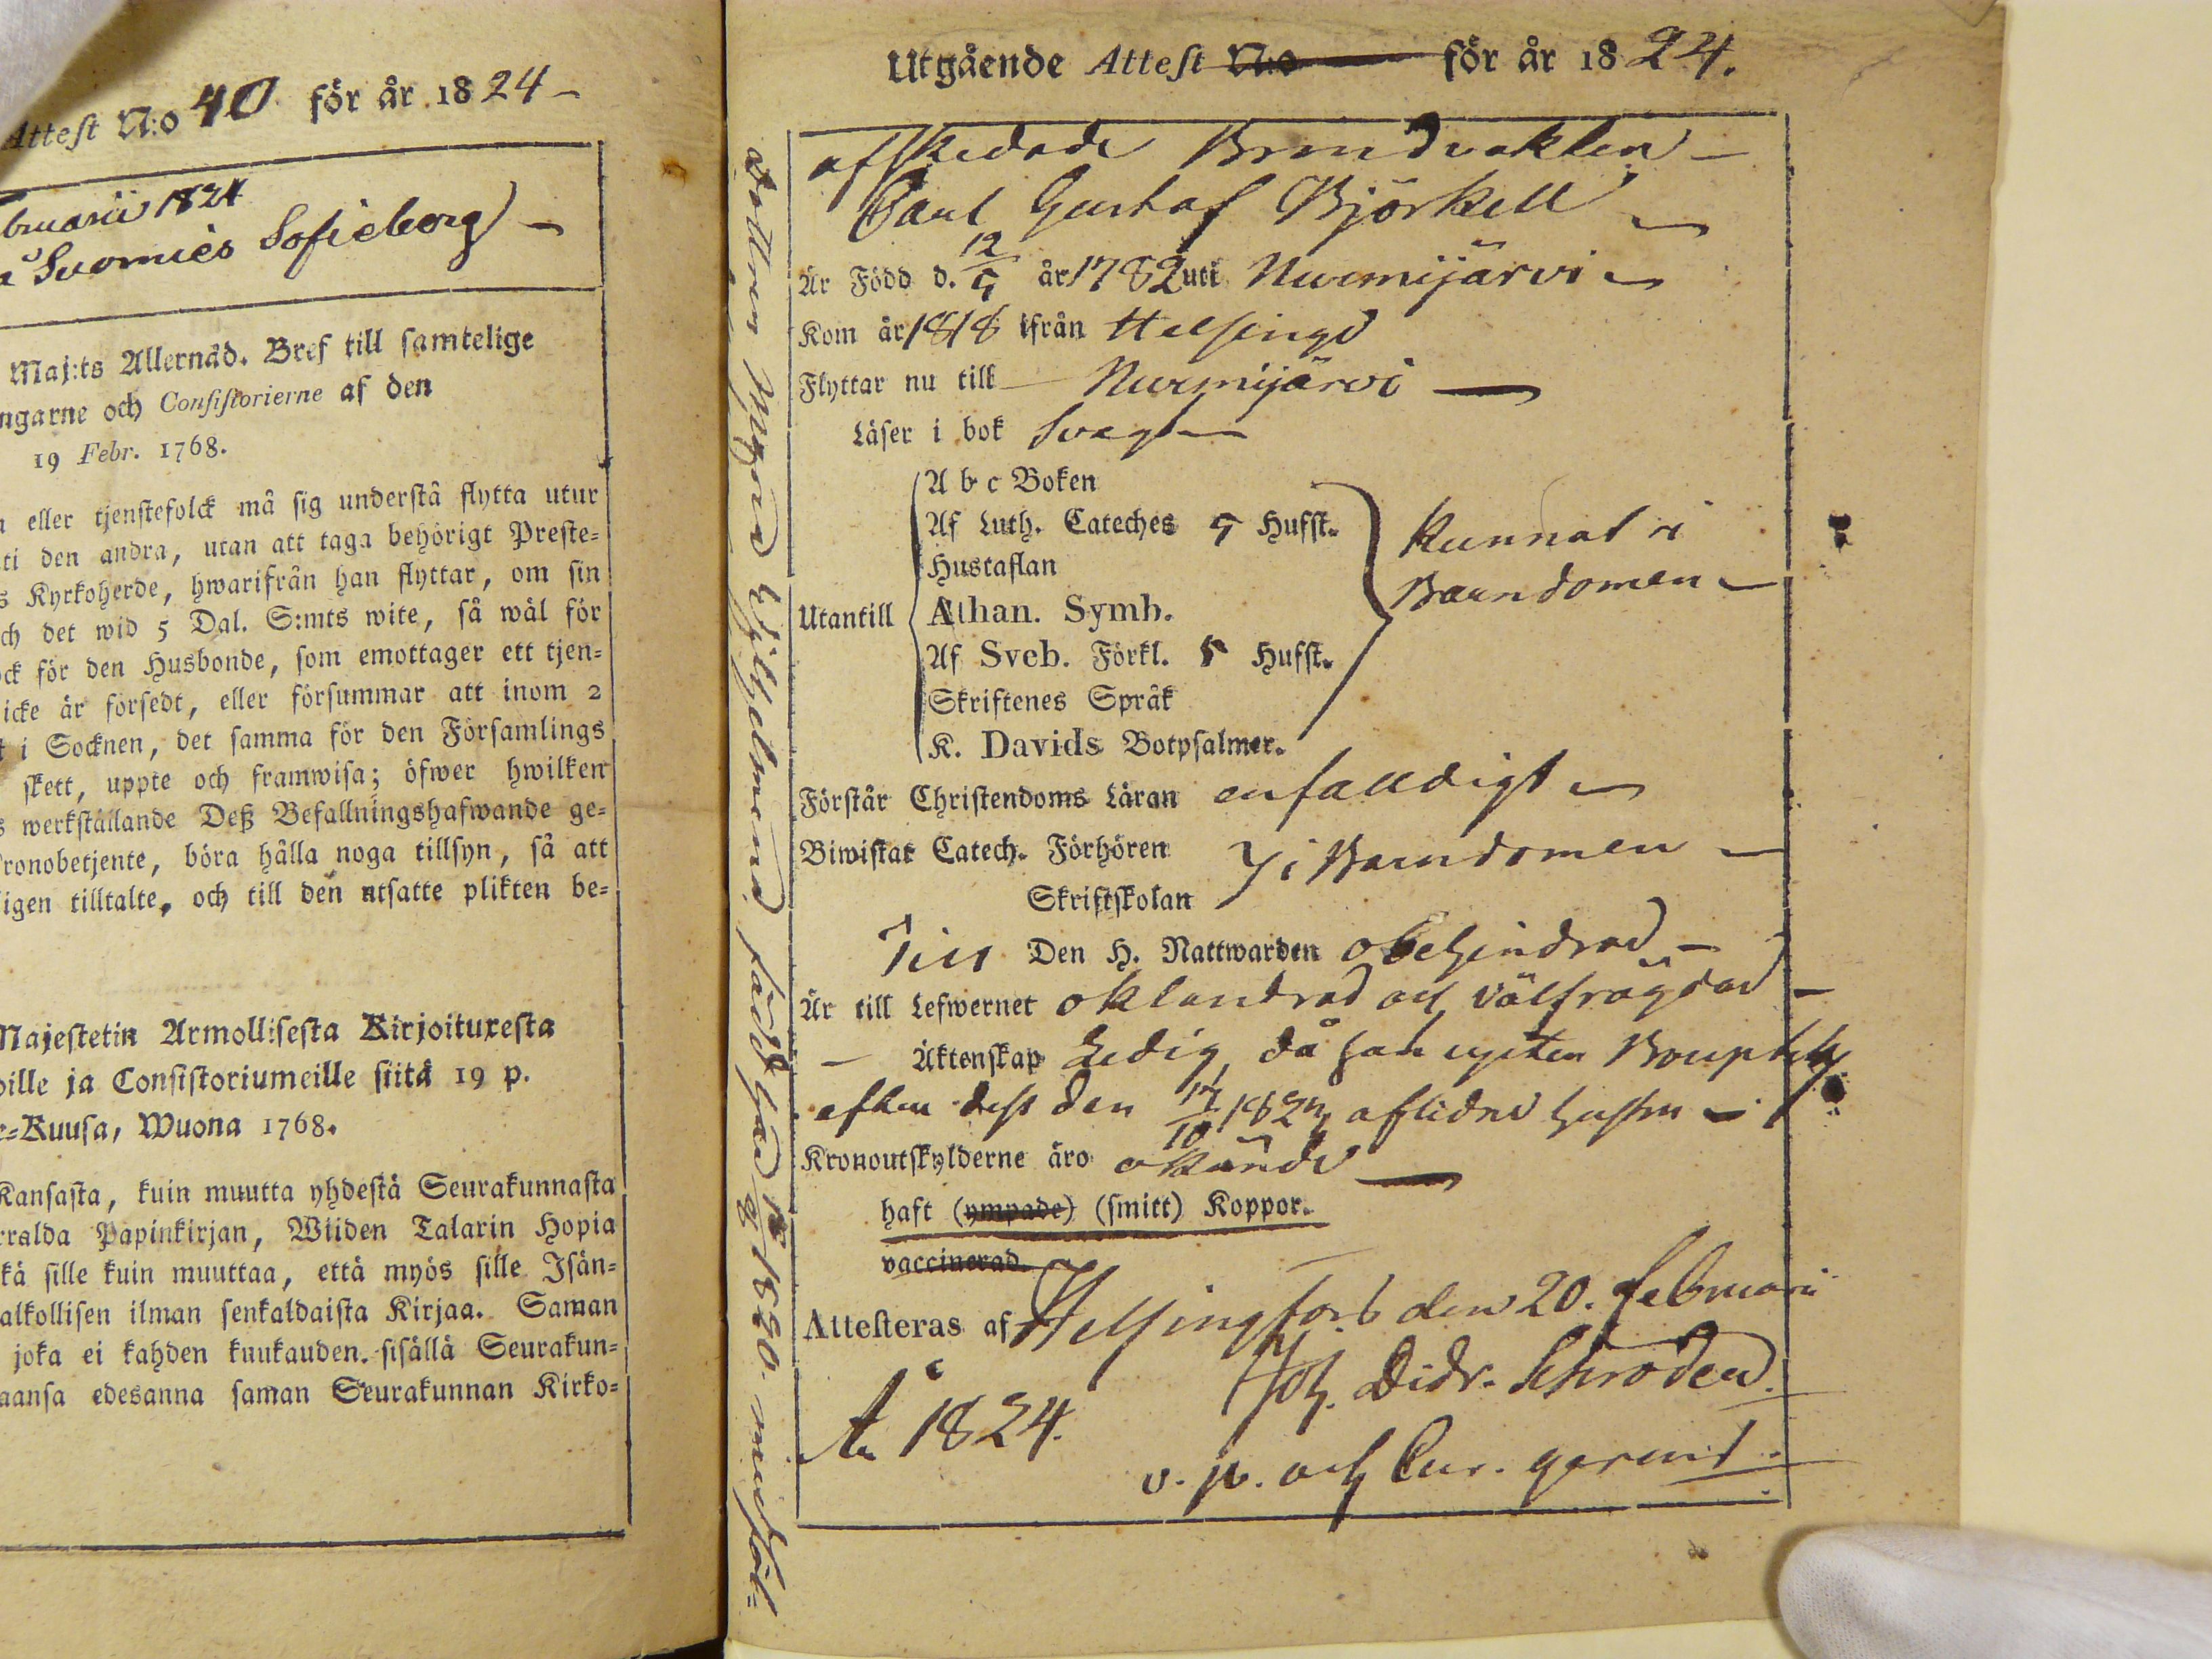 Attest N:o 40 för år 1824 –
bruarii 1824
Suomies Sofieborg –
Maj:ts Allernåd. Bref till samtelige
ngarne och Consistorierne af den
19 Febr. 1768.
eller tjenstefolck må sig understå flytta utur
ti den andra, utan att taga behörigt Preste-
s Kyrkoherde, hwarifrån han flyttar, om sin
ch det wid 5 Dal. S:mts wite, så wäl för
ock för den Husbonde, som emottager ett tjen-
icke är försedt, eller försummar att inom 2
t i Socknen, det samma för den Församlings
skett, uppte och framwisa; öfwer hwilken
s werkställande Deß Befallningshafwande ge-
ronobetjente, böra hålla noga tillsyn, så att
igen tilltalte, och till den utsatte plikten be-
Majestetin Armollisesta Kirjoituxesta
oille ja Consistoriumeille siitä 19 p.
e-Kuusa, Wuona 1768.
Kansasta, kuin muutta yhdestä Seurakunnasta
rralda Papinkirjan, Wiiden Talarin Hopia
kä sille kuin muuttaa, että myös sille Isän-
alkollisen ilman senkaldaista Kirjaa. Saman
joka ei kahden kuukauden sisällä Seurakun-
aansa edesanna saman Seurakunnan Kirko-
Utgående Attest N:o för år 1824.
afskedade Brandvakten –
Carl Gustaf Björkell –
Är Född d. 12/9 år 1782 uti Nurmijärvi –
Kom år 1818 ifrån Helsinge
Flyttar nu till – Nurmijärvi –
Läser i bok svagt –
A b c Boken
Af Luth. Cateches 5 Hufst.
Hustaflan
Utantill Athan. Symb.
Af Sveb. Förkl. 5 Hufst.
Skriftenes Språk
K. Davids Botpsalmer.
Kunnat i
Barndomen –
Förstår Christendoms Läran enfaldigt –
Biwistat Catech. Förhören
Skriftskolan
i Barndomen –
Till Den H. Nattwarden obehindrad –
Är till Lefwernet oklandrad och välfrägdad –
– Äktenskap Ledig, då han
efter dess den aflidne hustru –
Kronoutskylderne äro okände –
haft (ympade) (smitt) Koppor.
vaccinerad.
Attesteras af Helsingfors den 20. Februarii
År 1824. Joh. Didr. Schröder
v. p. och Cur. gerens
dottren Maria Wilhelmina född 1820